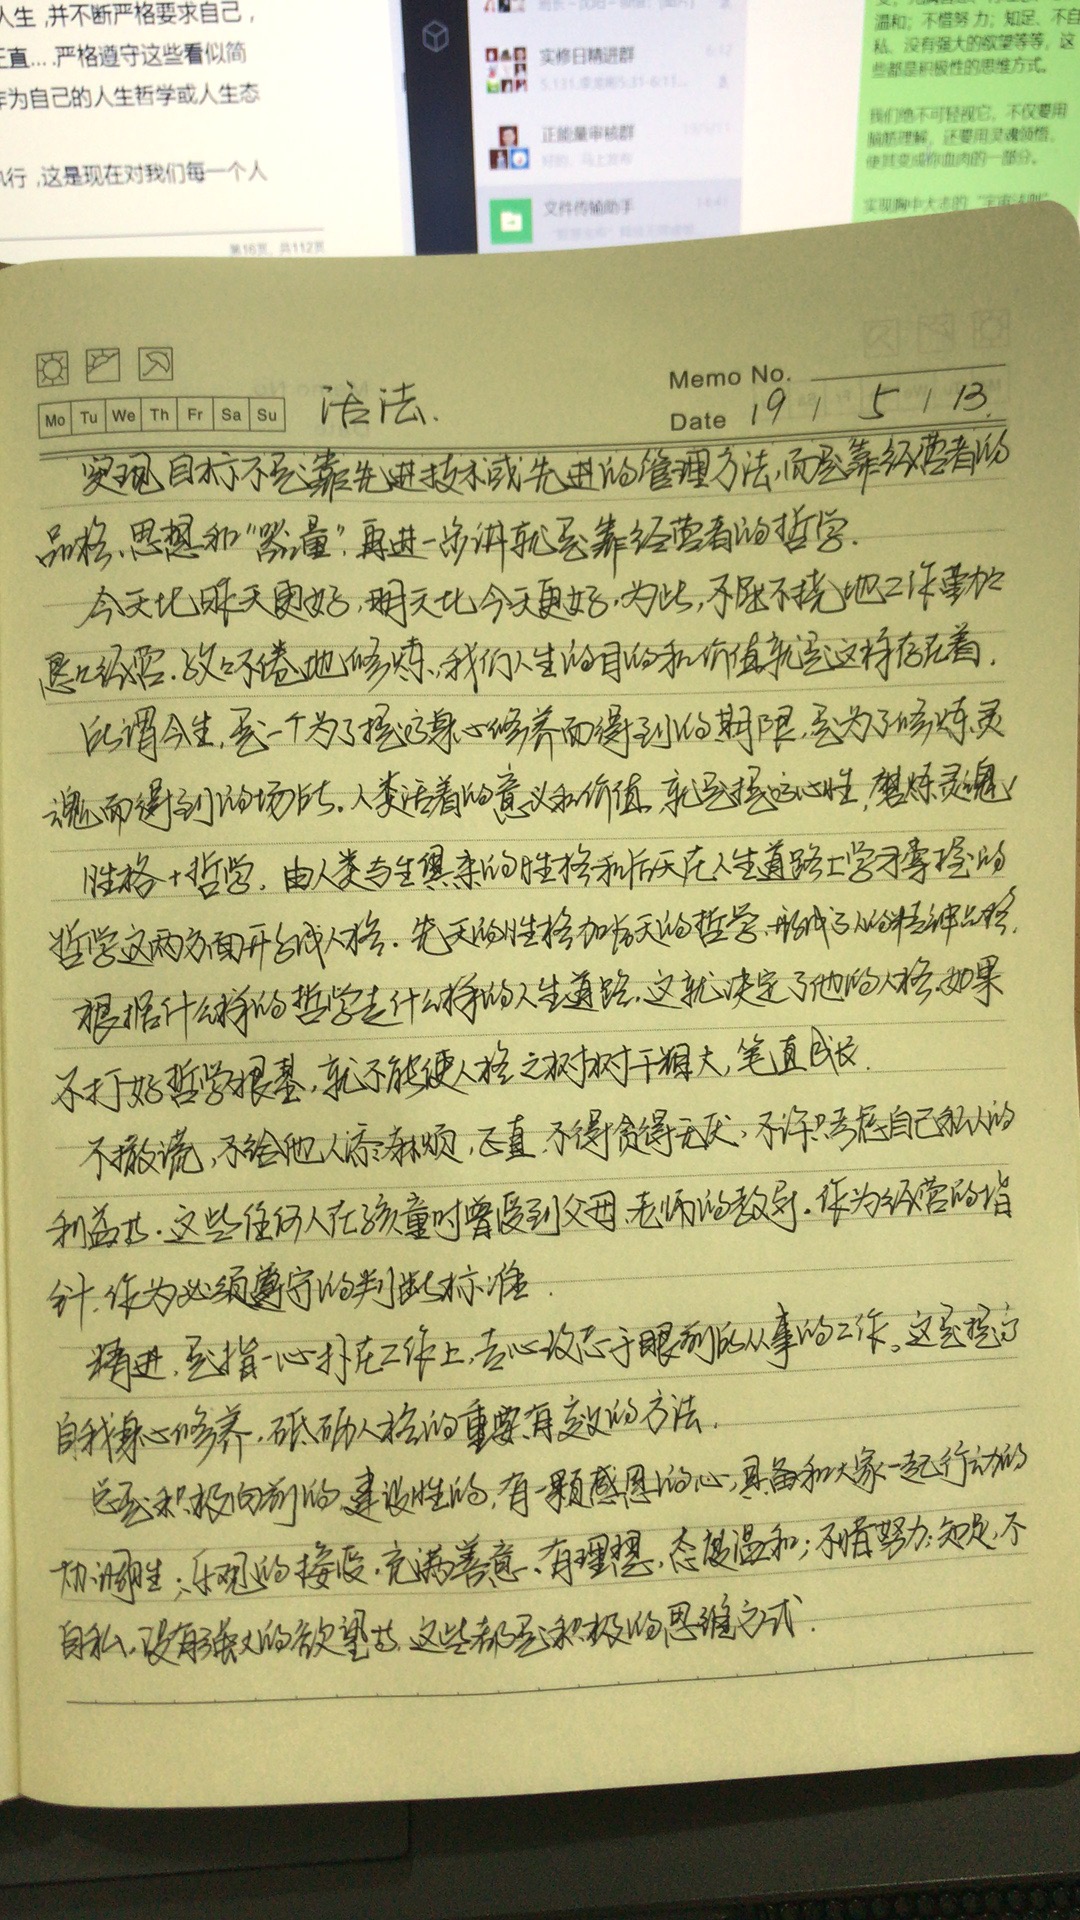 人生,并不断严格要求自己,
正直... .严格遵守这些看似简
作为自己的人生哲学或人生态
执行,这是现在对我们每一个人
第16页,共112页
实修日精进群
正能量审核群
文件传输助手
温和;不惜努力;知足、不自
私、没有强大的欲望等等,这
些都是积极性的思维方式。
我们绝不可轻视它,不仅要用
脑筋理解,还要用灵魂领悟,
使其变成你血肉的一部分。
实现胸中大志的“宇宙法则”
Memo No.
Mo Tu We Th Fr Sa Su
活法.
Date 19 / 5 / 13.
实现目标不是靠先进技术或先进的管理方法,而是靠经营者的
品格、思想和“器量”.再进一步讲就是靠经营者的哲学.
今天比昨天更好,明天比今天更好.为此,不屈不挠地工作勤勤
恳恳经营.孜孜不倦地修炼,我们人生的目的和价值就是这样存在着.
所谓今生,是一个为了提高身心修养而得到的期限,是为了修炼灵
魂而得到的场所.人类活着的意义和价值就是提高心性,磨炼灵魂
性格+哲学.由人类与生俱来的性格和后天在人生道路上学习掌握的
哲学这两方面开创成人格.先天的性格加后天的哲学,形成了人的精神品格.
根据什么样的哲学走什么样的人生道路.这就决定了他的人格.如果
不打好哲学根基,就不能使人格之树树干粗大,笔直成长.
不撒谎,不给他人添麻烦,正直.不得贪得无厌、不许只考虑自己私人的
利益等.这些任何人在孩童时曾受到父母、老师的教导.作为经营的指
针.作为必须遵守的判断标准.
精进,是指一心扑在工作上,专心致志于眼前所从事的工作。这是提高
自我身心修养.砥砺人格的重要有效的方法.
总是积极向前的,建设性的,有一颗感恩的心,具备和大家一起行动的
协调性;乐观的接受.充满善意、有理想,态度温和;不惜努力;知足,不
自私,没有强大的欲望等,这些都是积极的思维方式.